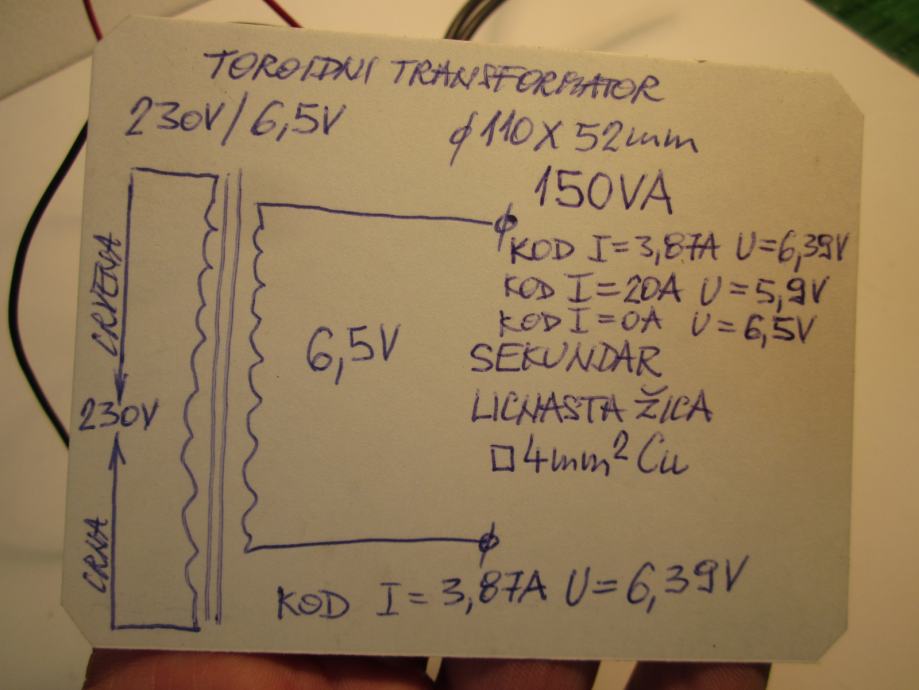 TOROIDNI TRANSFORMATOR
230V/6,5V
ϕ110X52mm
150VA
KOD I=3,87A U=6,39V
KOD I=20A U=5,9V
KOD I=0A U=6,5V
CRVENA
6,5V
SEKUNDAR
230V
LICNASTA ŽICA
□4mm² Cu
CRNA
KOD I=3,87A U=6,39V